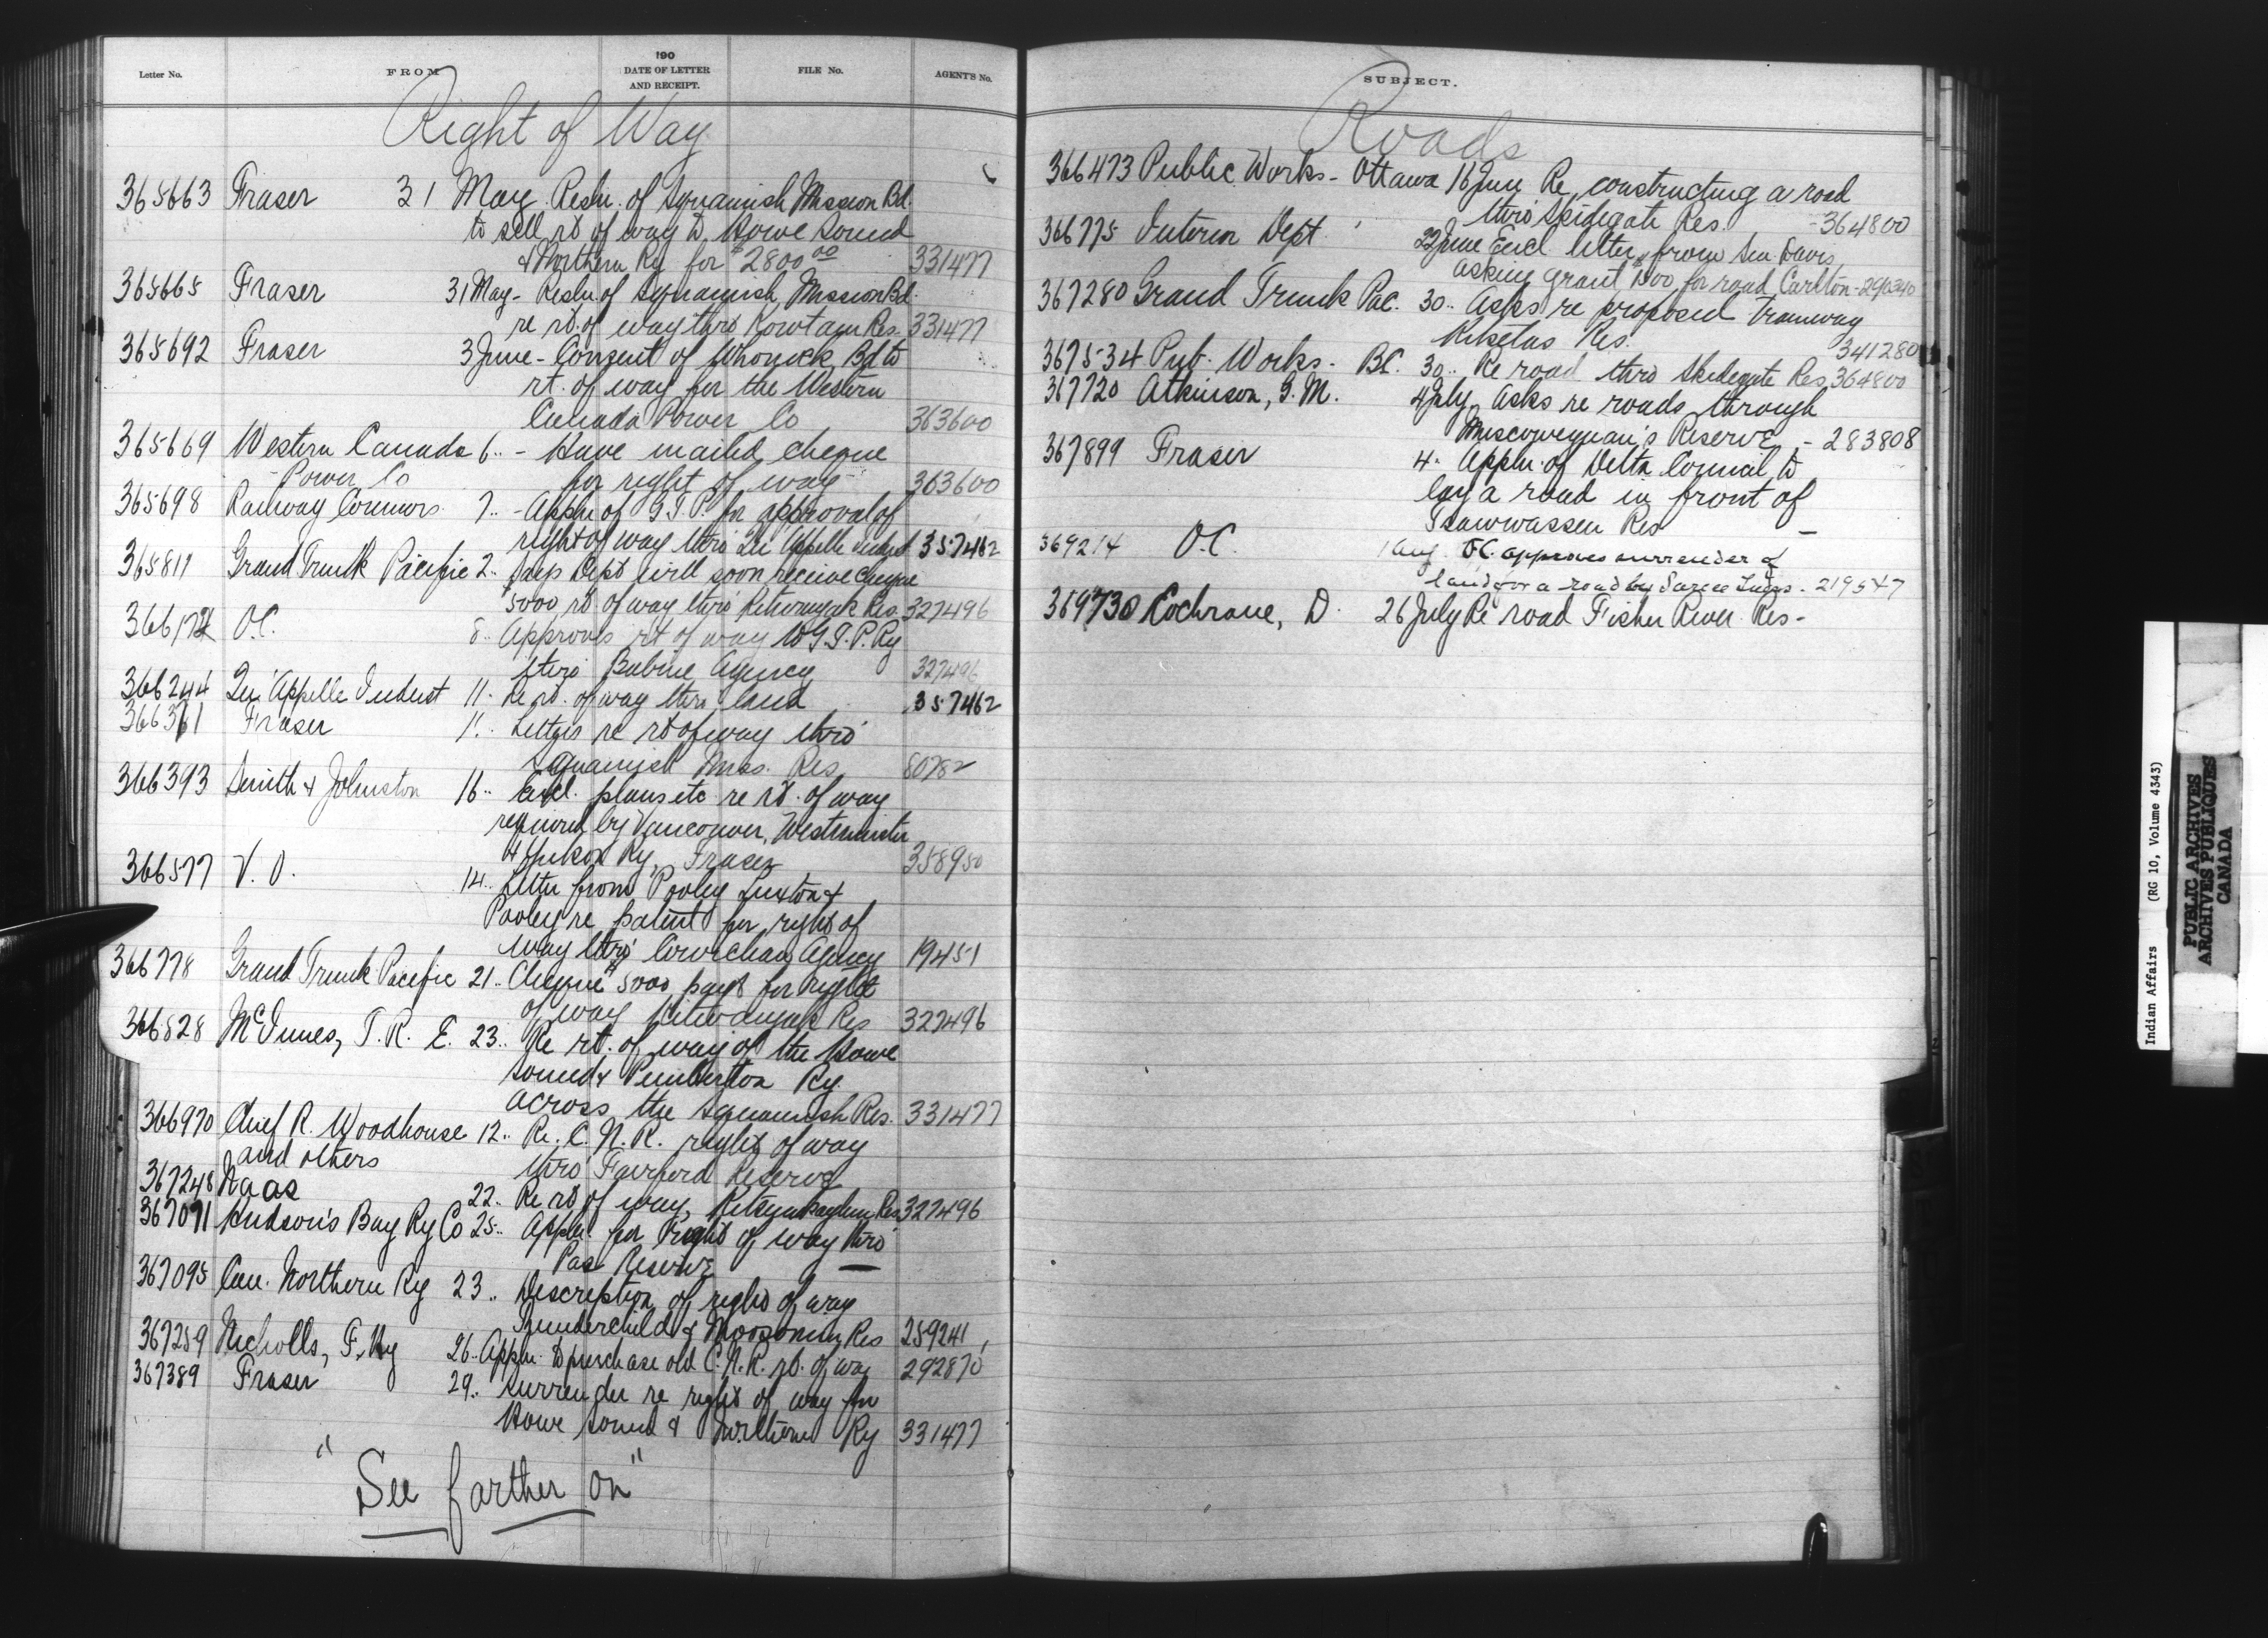 190
Letter No. FROM DATE OF LETTER AND RECEIPT. FILE No. AGENTS No.
Right of Way
365663 Fraser 31 May Resln. of Squamish Mission Bd.
to sell rt of way to Howe Sound
& Northern Ry for $2800.00 331477
365665 Fraser 31 May - Resln. of Squamish Mission Bd.
re rt. of way thro Kowtain Res. 331477
365692 Fraser 3 June - Consent of Whonock Bd to
rt. of way for the Western
Canada Power Co 363600
365669 Western Canada 6 " - Have mailed cheque
Power Co for right of way 363600
365698 Railway Commrs. 7 " - Appln of G.T.P. for approval of
right of way thro' Qu'Appelle Indust 357462
365811 Grand Trunk Pacific 2 " Says Dept will soon receive cheque
$5000 rt of way thro' Kitwangak Res. 327496
366174 O.C. 8 " Approves rt of way to G.T.P. Ry
thro Babine Agency 327496
366244 Qu'Appelle Indust 11 " Re rt. of way thro land 357462
366361 Fraser 11 " Letters re rt of way thro'
Squamish Miss. Res 80782
366393 Smith & Johnston 16 " Encl. plans etc re rt. of way
required by Vancouver, Westminster
& Yukon Ry, Fraser 358950
366577 V. O. 14 " Letter from Pooley Luxton &
Pooley re patent for right of
way thro' Cowichan Agency 19451
366778 Grand Trunk Pacific 21 " Cheque $5000 payt for right
of way Kitwangak Res 327496
366828 McInnes, T. R. E. 23 " Re rt. of way of the Howe
Sound & Pemberton Ry.
across the Squamish Res. 331477
366970 Chief R. Woodhouse 12 " Re. C. N. R. right of way
and others thro' Fairford Reserve
367248 Naas 22 " Re rt of way, Kitsumkaylum Res 327496
367071 Hudson's Bay Ry Co 25 " Appln for right of way thro'
Pas Reserve —
367095 Can. Northern Ry 23 " Description of right of way
Thunderchild & Moosomin Res 259241
367259 Nicholls, F. Hy 26 " Appln to purchase old C.N.R. rt. of way 292870
367389 Fraser 29 " Surrender re right of way for
Howe Sound & Northern Ry 331477
"See farther on"
SUBJECT.
Roads
366473 Public Works - Ottawa 16 June Re constructing a road
thro' Skidegate Res. - 364800
366775 Interior Dept. 22 June Encl letter from Sen. Davis
asking grant $1500 for road Carlton - 290340
367280 Grand Trunk Pac. 30 " Asks re proposed tramway
Kitsetas Res. 341280
367534 Pub. Works - BC. 30 " Re road thro Skidegate Res 364800
367720 Atkinson, G. M. 4 July Asks re roads through
Muscowequan's Reserve - 283808
367899 Fraser 4 " Appln. of Delta Council to
lay a road in front of
Tsawwassen Res —
369214 O.C. 1 Aug. O.C. approves surrender of
land for a road by Sarcee Inds. - 219547
369730 Cochrane, D. 26 July Re road Fisher River Res -
Indian Affairs (RG 10, Volume 4343)
PUBLIC ARCHIVES
ARCHIVES PUBLIQUES
CANADA